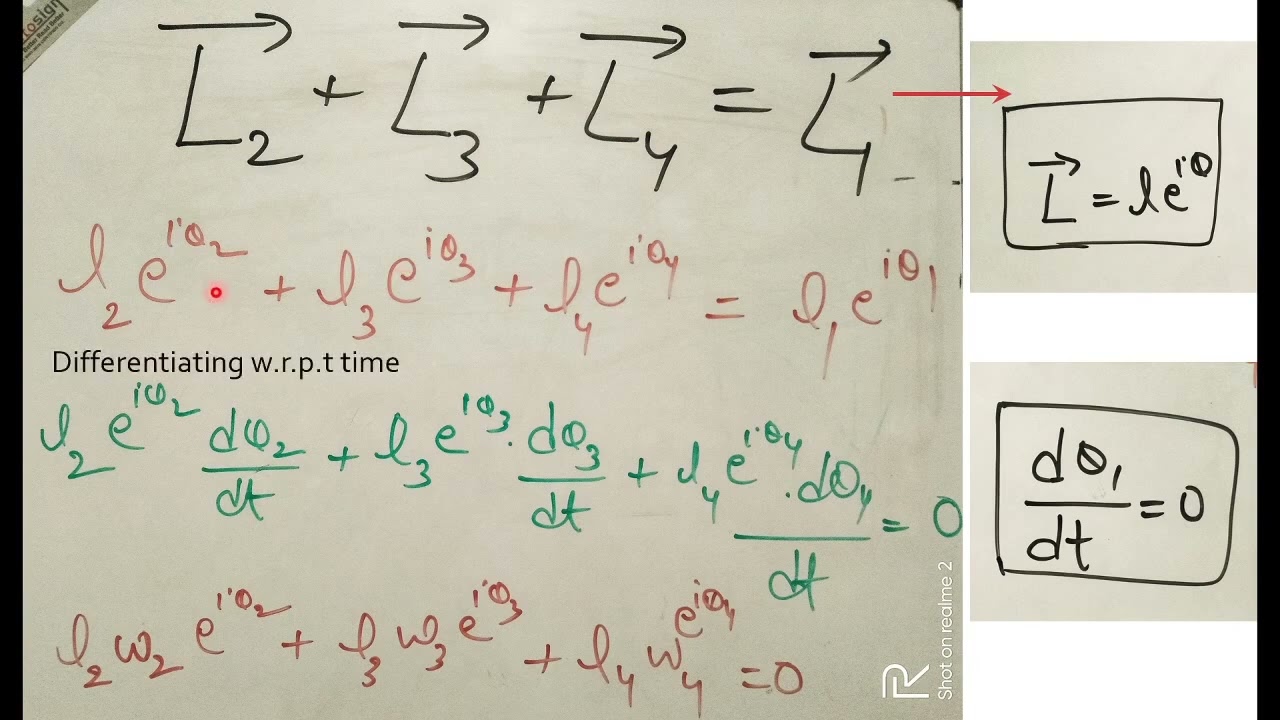 L⃗₂ + L⃗₃ + L⃗₄ = L⃗₁
L⃗ = le^{iθ}
l₂e^{iθ₂} + l₃e^{iθ₃} + l₄e^{iθ₄} = l₁e^{iθ₁}
Differentiating w.r.p.t time
l₂e^{iθ₂} dθ₂/dt + l₃e^{iθ₃}. dθ₃/dt + l₄e^{iθ₄}. dθ₄/dt = 0
dθ₁/dt = 0
l₂ω₂e^{iθ₂} + l₃ω₃e^{iθ₃} + l₄ω₄e^{iθ₄} = 0
Shot on realme 2